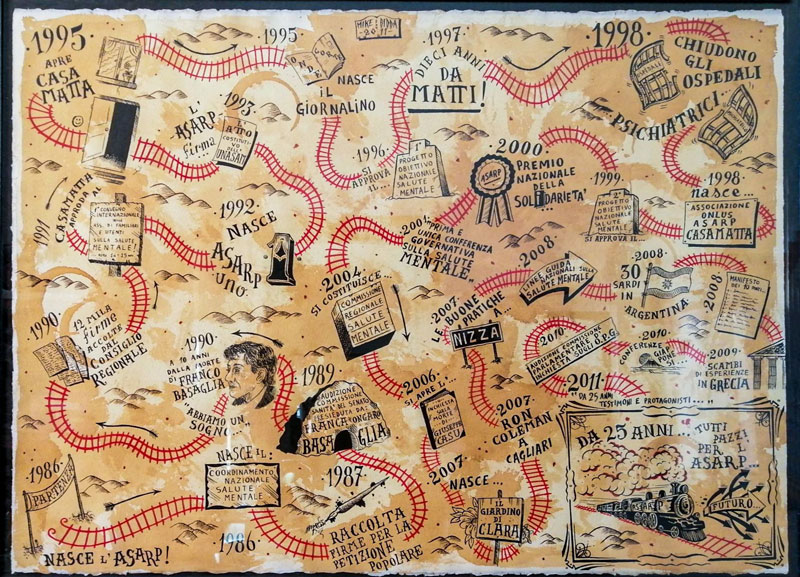 1986
PARTENZA
NASCE L'ASARP!
NASCE IL:
COORDINAMENTO
NAZIONALE
SALUTE
MENTALE
1986
1987
RACCOLTA
FIRME PER LA
PETIZIONE
POPOLARE
1989
AUDIZIONE
COMMISSIONE
SANITA' DEL SENATO
FRANCA ONGARO
BASAGLIA
1990
A 10 ANNI
DALLA MORTE
DI FRANCO
BASAGLIA
"ABBIAMO UN
SOGNO"
1990
12 MILA
FIRME
RACCOLTE
DAL
CONSIGLIO
REGIONALE
1991
CASAMATTA
APPRODA AL
1° CONVEGNO
INTERNAZIONALE
ASS. DI FAMILIARI
E UTENTI
SULLA SALUTE
MENTALE!
1992
NASCE
ASARP
UNO
1993
L'ASARP
firma
ATTO
COSTITUTIVO
DELL'
UNASAM
1995
APRE
CASA
MATTA
1995
NASCE
IL
GIORNALINO
MIKE BIDDA
2011
1996
SI APPROVA IL...
PROGETTO
OBIETTIVO
NAZIONALE
SALUTE
MENTALE
1997
DIECI ANNI
DA
MATTI!
1998
CHIUDONO
GLI
OSPEDALI
PSICHIATRICI
OSPEDALI
1998
nasce...
ASSOCIAZIONE
ONLUS
ASARP
CASAMATTA
1999
PROGETTO
OBIETTIVO
NAZIONALE
SALUTE
MENTALE
SI APPROVA IL...
2000
ASARP
PREMIO
NAZIONALE
DELLA
SOLIDARIETA'
2001
PRIMA E
UNICA CONFERENZA
GOVERNATIVA
SULLA SALUTE
MENTALE
2004
SI COSTITUISCE...
COMMISSIONE
REGIONALE
SALUTE
MENTALE
2006
SI APRE L'...
INCHIESTA
SULLA
MORTE
DI
GIUSEPPE
CASU
2007
NASCE...
IL
GIARDINO
DI
CLARA
2007
RON
COLEMAN
A
CAGLIARI
2007
LE BUONE
PRATICHE
A...
NIZZA
2008
LINEE GUIDA
NAZIONALI SULLA
SALUTE MENTALE
2008
30
SARDI
IN
ARGENTINA
2008
MANIFESTO
2009
SCAMBI
DI ESPERIENZE
IN GRECIA
2010
CONFERENZE
GIAP
PONE
2010
AUDIZIONE COMMISSIONE
PARLAMENTARE
INCHIESTA SUGLI O.P.G.
2011
"DA 25 ANNI
TESTIMONI E PROTAGONISTI..."
DA 25 ANNI...
TUTTI
PAZZI
PER
L'
ASARP...
ASARP
FUTURO